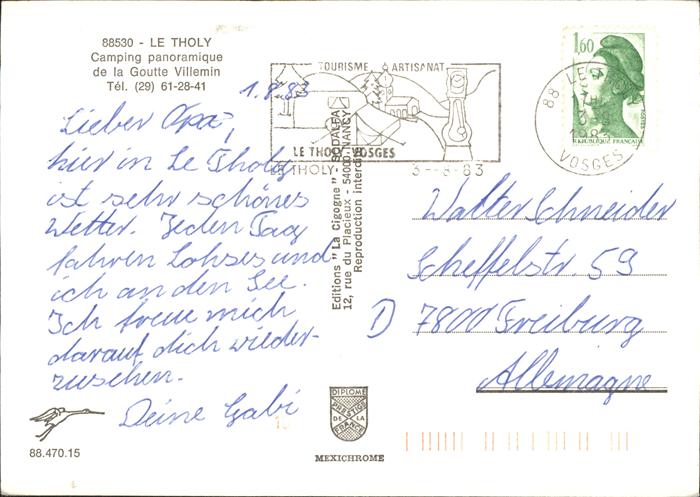 88530 - LE THOLY
Camping panoramique
de la Goutte Villemin
Tél. (29) 61-28-41
1.8.83
Lieber Opa,
hier in Le Tholy
ist sehr schönes
Wetter. Jeden Tag
fahren Lohses und
ich an den See.
Ich freue mich
darauf, dich wieder-
zusehen.
Deine Gabi
88.470.15
TOURISME & ARTISANAT
LE THOLY VOSGES
LE THOLY
3--8-83
Editions "La Cigogne" - SODALFA
12, rue du Placieux - 54000 NANCY
Reproduction interdite
DIPLOME
PRESTIGE
DE LA
FRANCE
MEXICHROME
1,60
REPUBLIQUE FRANCAISE
88 LE THOLY
1983
VOSGES
Walter Schneider
Scheffelstr. 59
D 7800 Freiburg
Allemagne